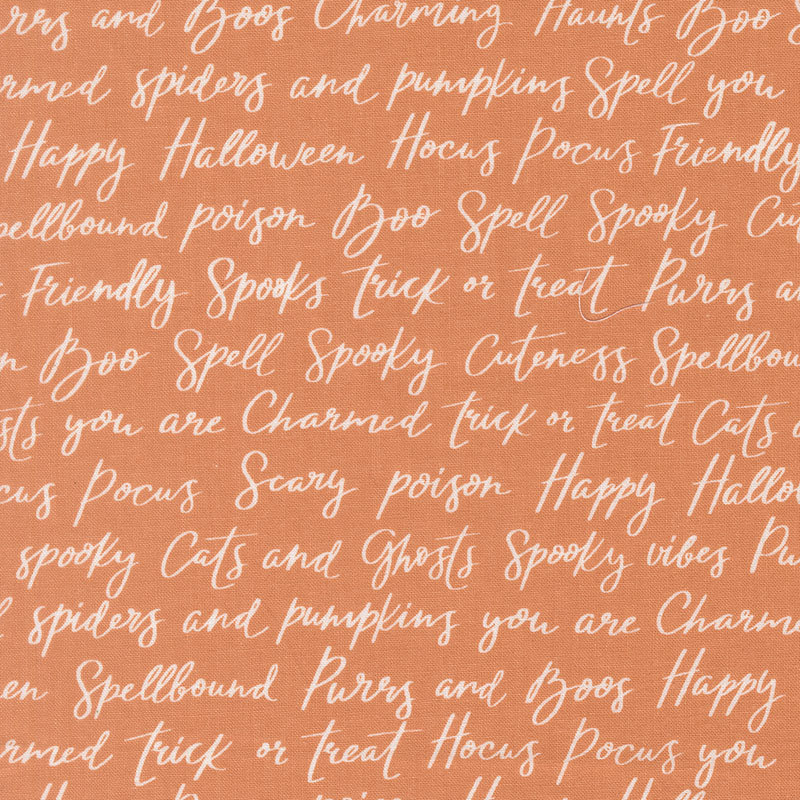 urrs and Boos Charming Haunts Boo S
rmed spiders and pumpkins Spell you
Happy Halloween Hocus Pocus Friendly
pellbound poison Boo Spell Spooky Cut
s Friendly Spooks trick or treat Purrs a
n Boo Spell Spooky Cuteness Spellbou
sts you are Charmed trick or treat Cats a
cus Pocus Scary poison Happy Hallo
spooky Cats and Ghosts Spooky vibes Pu
l spiders and pumpkins you are Charme
en Spellbound Purrs and Boos Happy
rmed trick or treat Hocus Pocus you